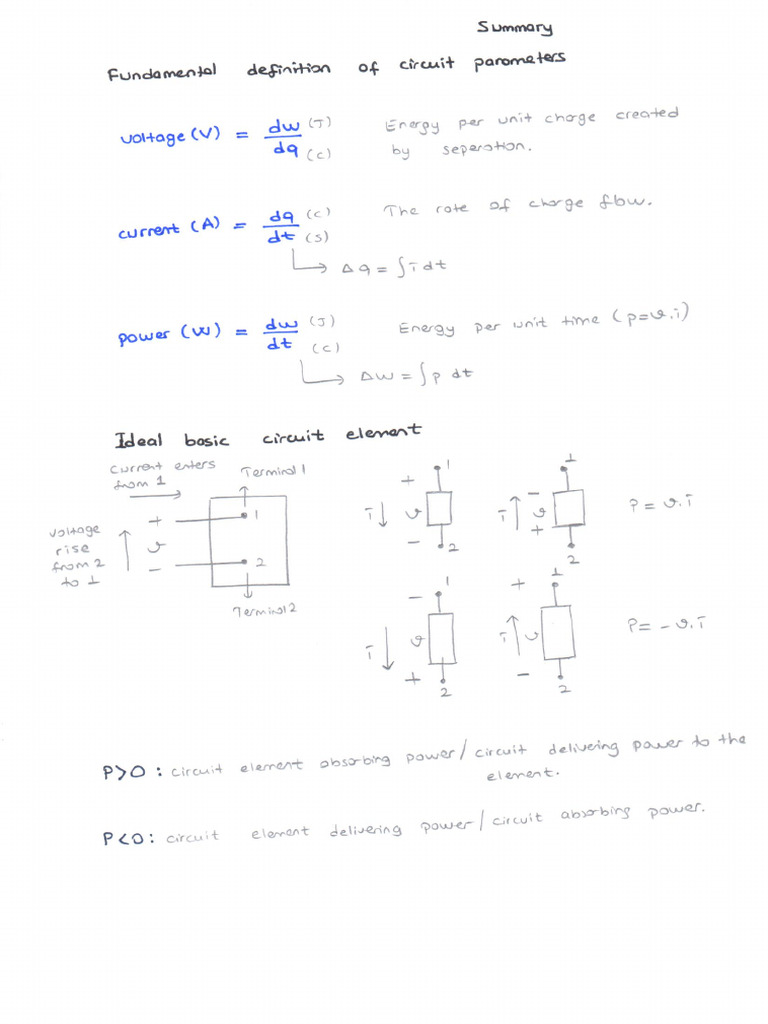 Summary
Fundamental definition of circuit parometers
voltage (V) = dw (J) / dq (C) Energy per unit charge created
by seperation.
current (A) = dq (C) / dt (s) The rate of charge flow.
Δq = ∫i dt
power (W) = dw (J) / dt (C) Energy per unit time (p=v.i)
Δw = ∫p dt
Ideal basic circuit element
current enters
from 1
Terminal 1
voltage
rise
from 2
to 1
+ 1
v
- 2
Terminal 2
1
+
i v
-
2
1
-
i v
+
2
P = v.i
1
-
i v
+
2
1
+
i v
-
2
P = - v.i
P>0 : circuit element absorbing power / circuit delivering power to the
element.
P<0 : circuit element delivering power / circuit absorbing power.